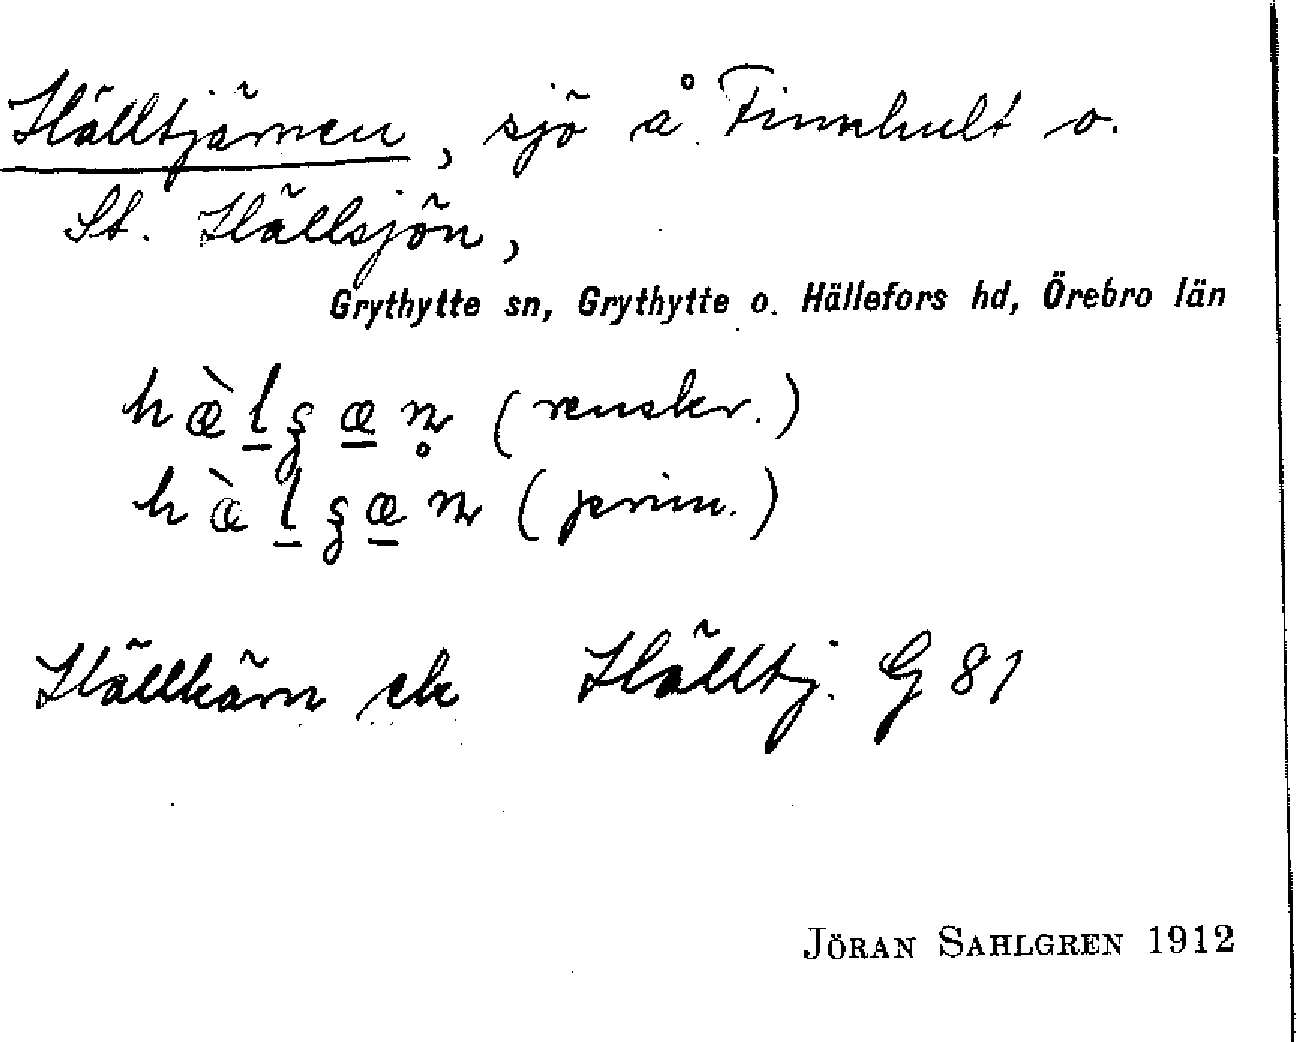 Hälltjärnen, sjö å Finnhult o.
St. Hällsjön,
Grythytte sn, Grythytte o. Hällefors hd, Örebro län
hæ̀l̲ʂæ̲n̥ (renskr.)
hæ̀l̲ʂæ̲n (prim.)
Hällkärn ek Hälltj. G 81
JÖRAN SAHLGREN 1912